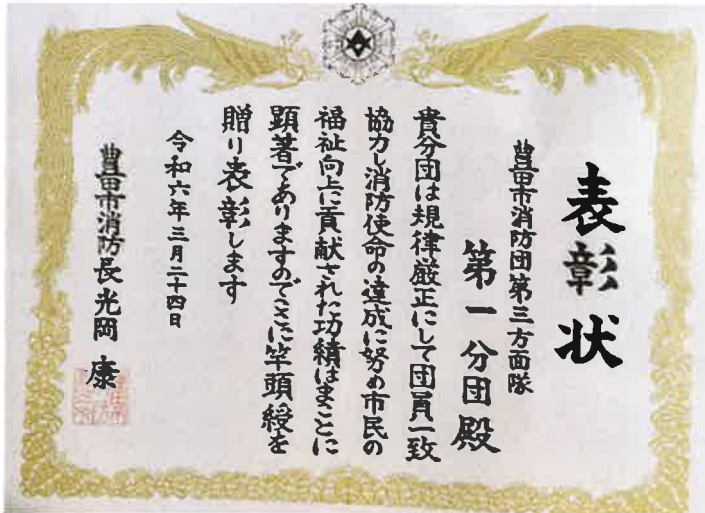 表彰状
豊田市消防団第三方面隊
第一分団殿
貴分団は規律厳正にして団員一致
協力し消防使命の達成に努め市民の
福祉向上に貢献された功績はまことに
顕著でありますのでここに竿頭綬を
贈り表彰します
令和六年三月二十四日
豊田市消防長光岡康